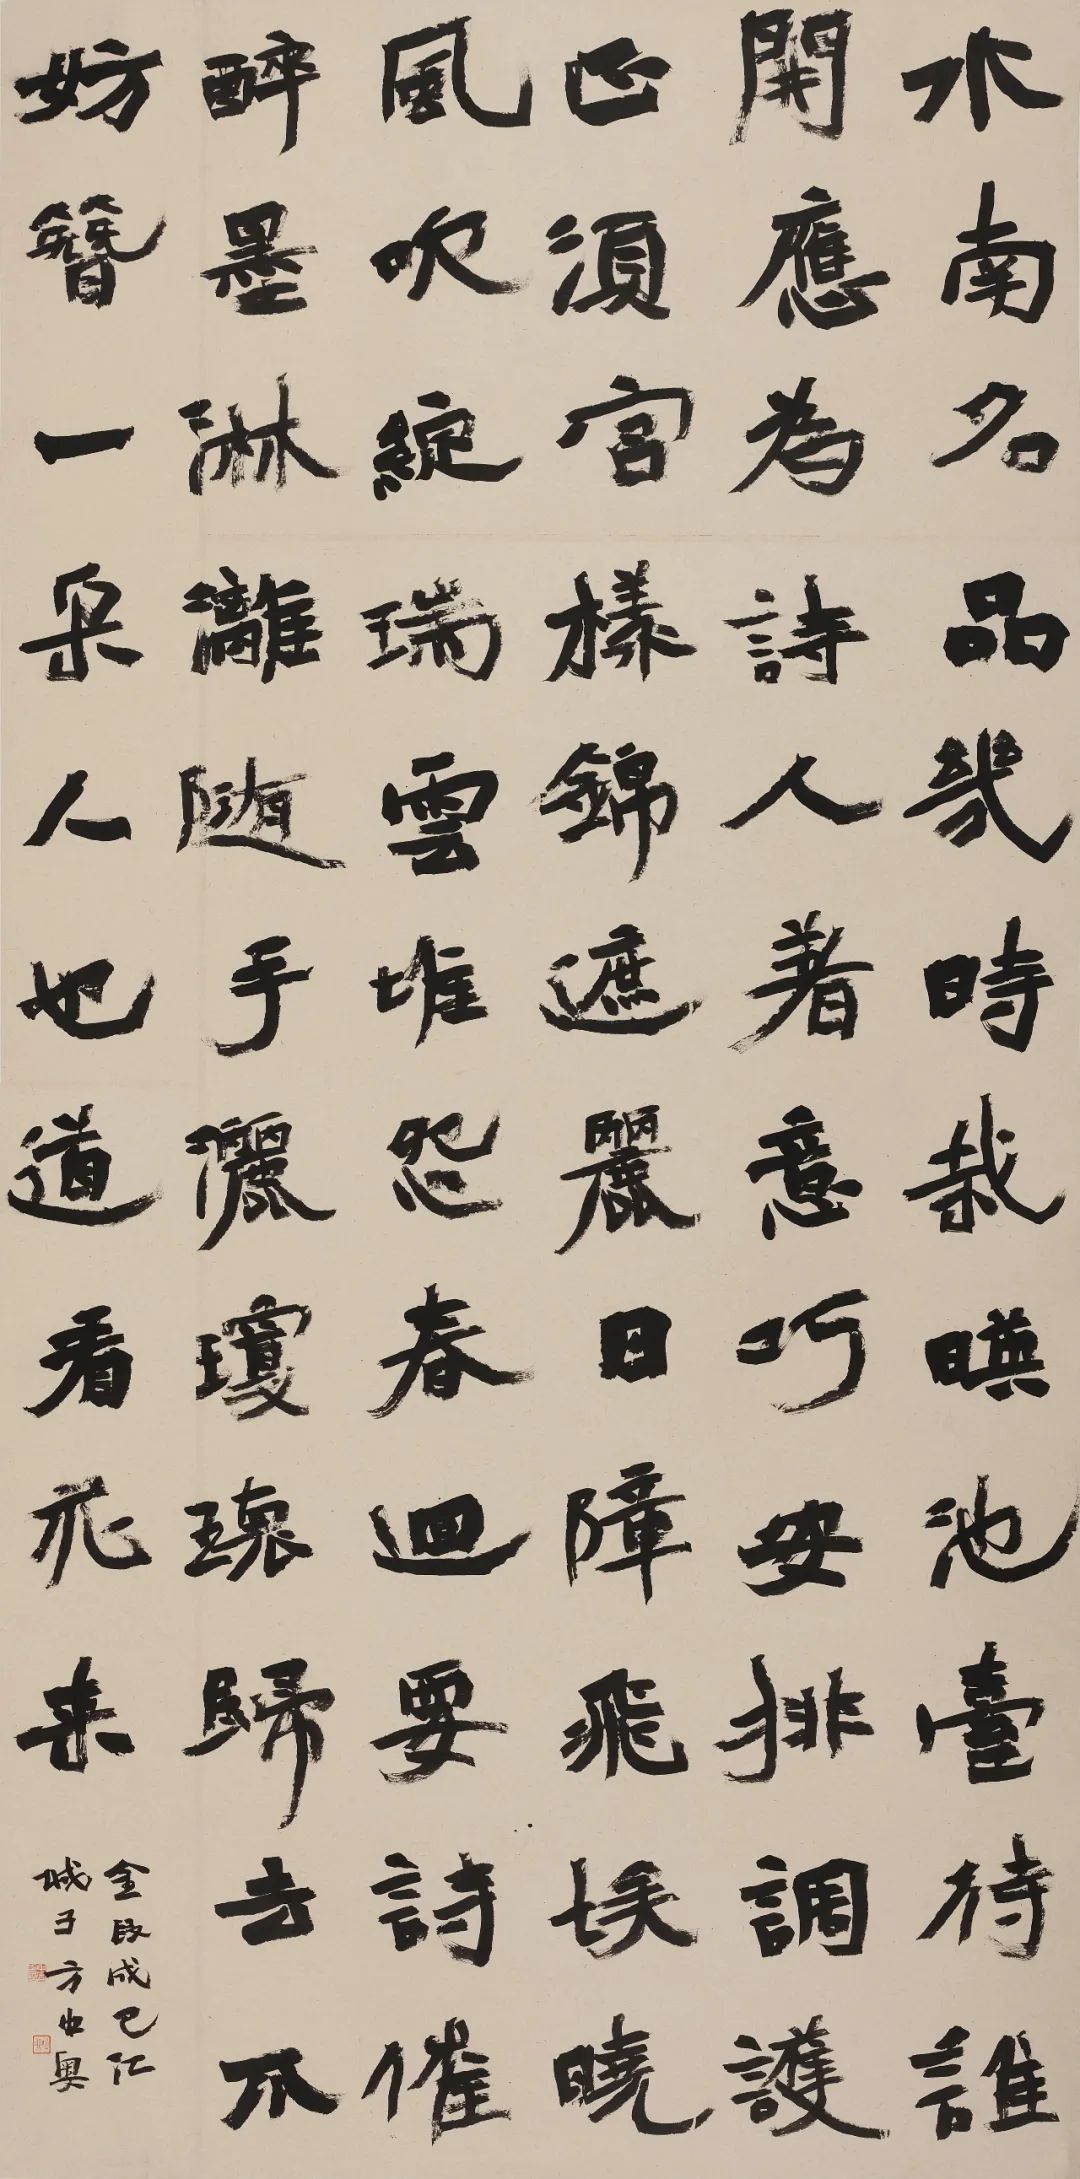 水南名品幾時栽暎池臺待誰
開應為詩人著意巧安排調護
正須宮樣錦遮麗日障飛埃曉
風吹綻瑞雲堆怨春迴要詩催
醉墨淋灕随手灑瓊瓌歸去不
妨簪一朵人也道看花来
金段成己江
城子方